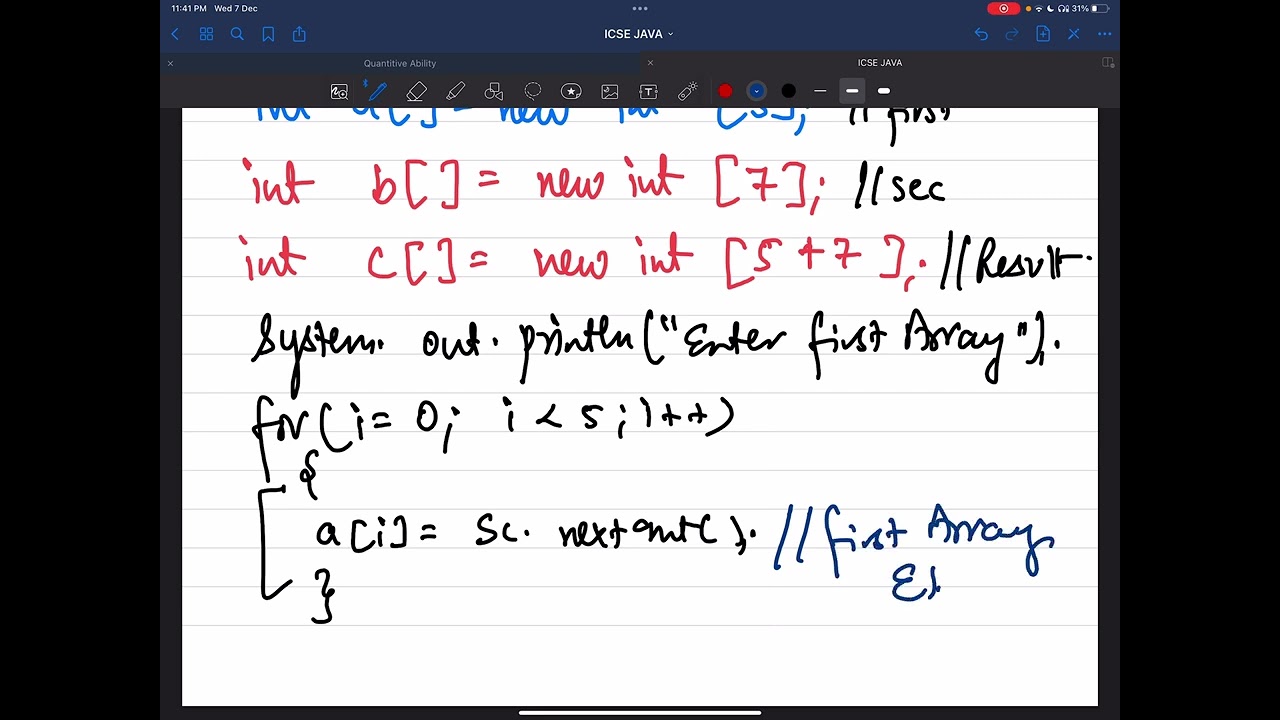 11:41 PM Wed 7 Dec
31%
ICSE JAVA
Quantitive Ability
ICSE JAVA
int a[] = new int [5]; // first
int b[] = new int [7]; // sec
int c[] = new int [5+7]; // Result
System. out. println("Enter first Array");
for(i= 0; i < 5; i++)
{
a[i]= Sc. nextInt(); // first Array
El.
}